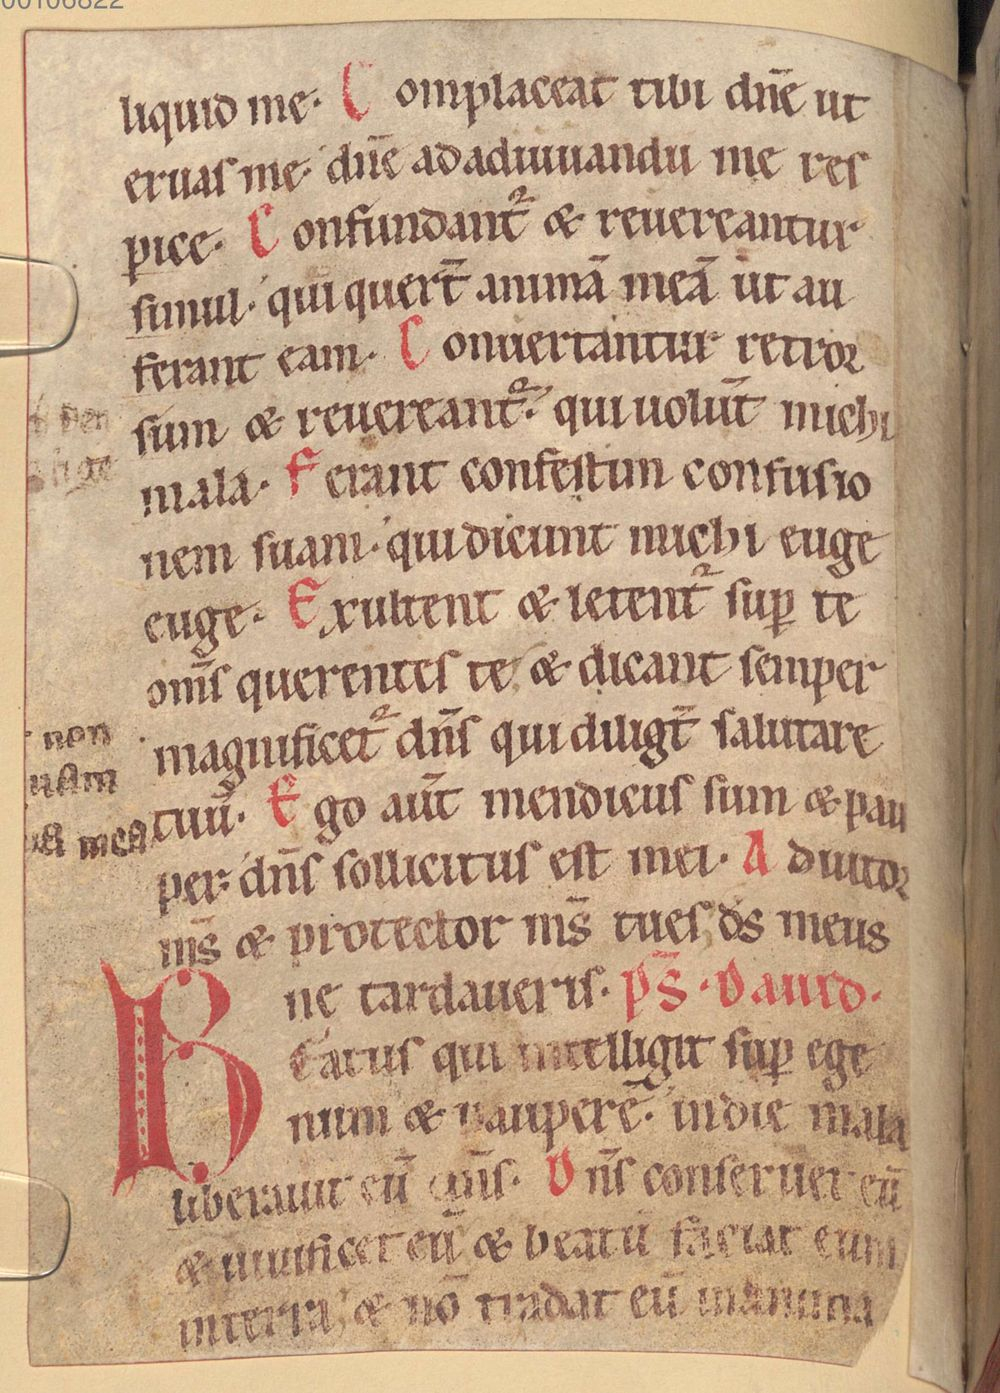 00106822
liquid me. Complaceat tibi dn̄e ut
eruas me. dn̄e ad adiuuandū me res
pice. Confundant᷑ & reuereantur
simul. qui quer̄t animā meā ut au
ferant eam. Conuertantur retror
sum & reuereant᷑. qui uolūt michi
mala. Ferant confestim confusio
nem suam. qui dicunt michi euge
euge. Exultent & letent᷑ suꝑ te
om̄s querentes te & dicant semper
magnificet᷑ dn̄s qui diligt̄ salutare
tuū. Ego aūt mendicus sum & pau
per. dn̄s sollicitus est mei. Adiutor
ms̄ & protector ms̄ tu es, ds̄ meus
ne tardaueris. ps̄. Dauid.
Beatus qui intelligit suꝑ ege
num & pauperē. in die mala
liberauit eū dn̄s. Dn̄s conseruet eū
& uiuificet eū & beatū faciat eum
in terra, & nō tradat eū
non
mea